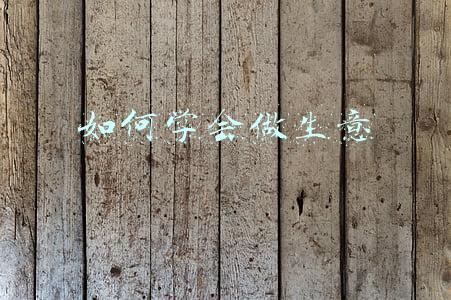 如何学会做生意